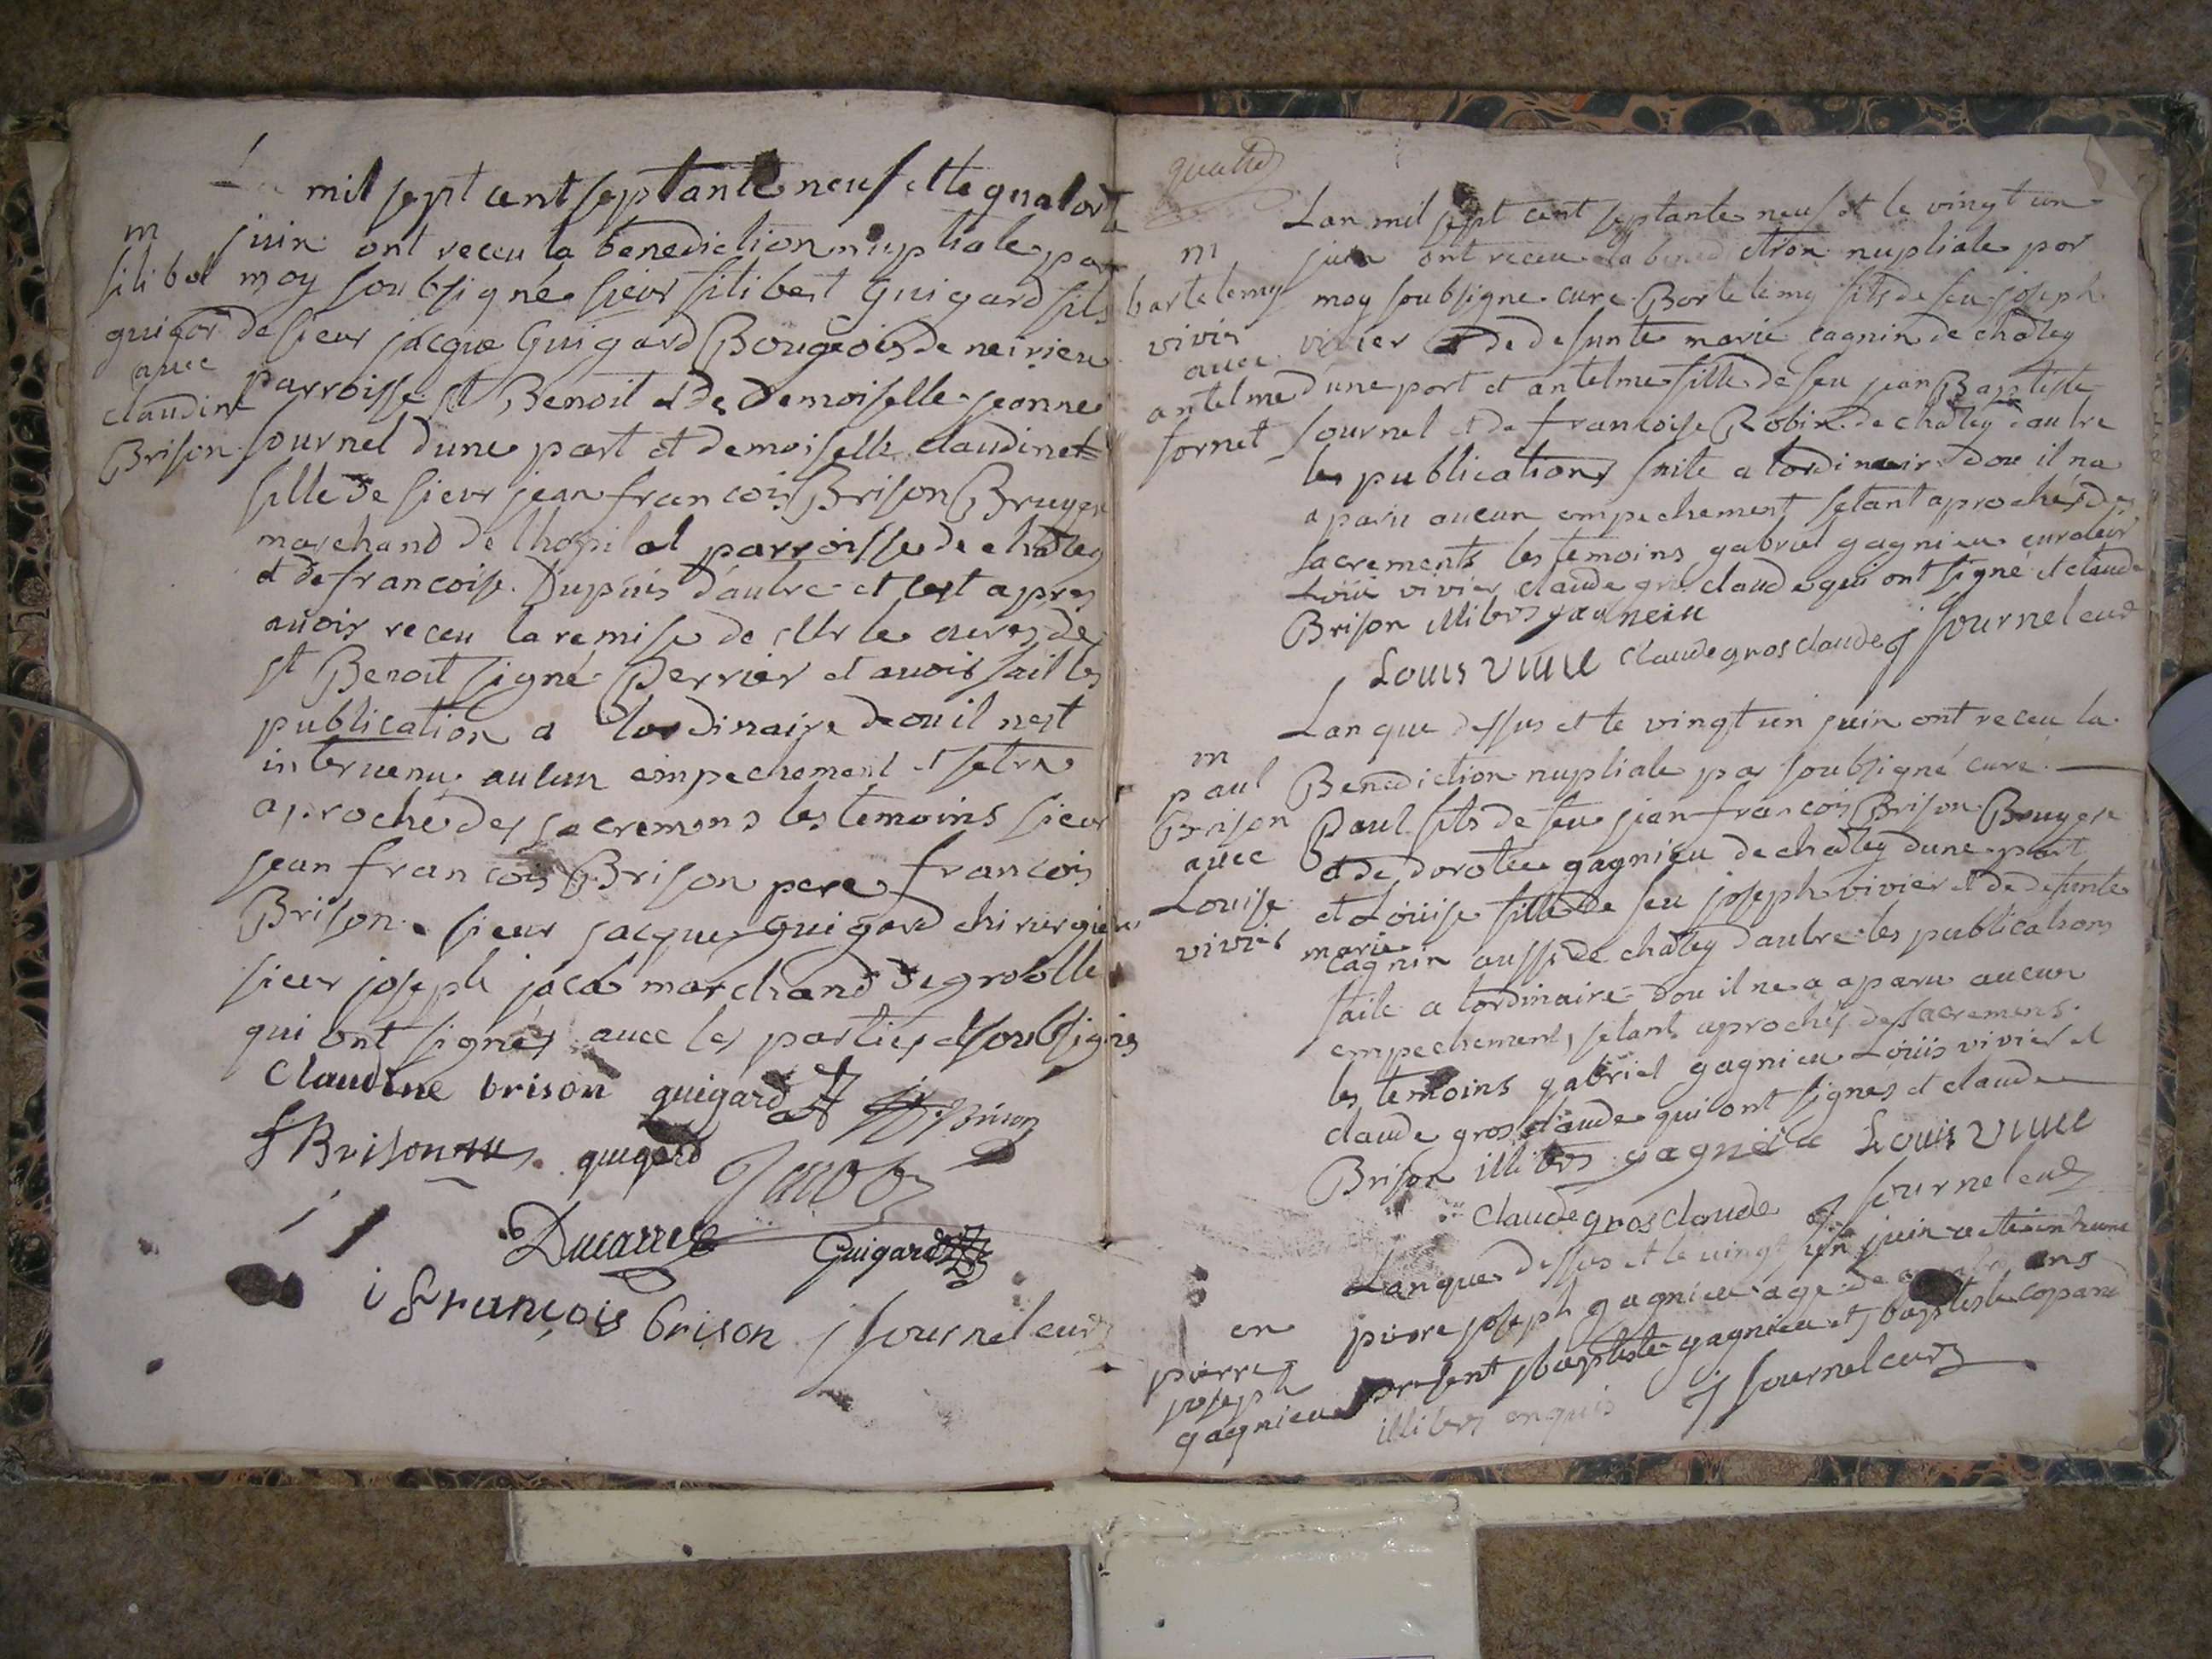 mil sept cent septante neuf et le quatorze
juin ont receu la benediction nuptiale par
moy soubsigné sieur filibert Guigard fils
de sieur jacque Guigard Bougeois de neirieu
parroisse st Benoit et de Demoiselle jeanne
fournel dune part et demoiselle claudine
fille de sieur jean francois Brison Bruyere
marchand de lhopital parroisse de chatey
et de francoise Dupuis dautre et cest apres
auoir receu la remise de Mr le cure de
st Benoit signé Perrier et auoir fait les
publication a lordinaire de ou il nest
interuenu aucun empechement
aproché des sacremens les temoins sieur
jean francois Brison pere francois
Brison sieur jacque guigard chirurgien
sieur joseph jacob marchand de grololle
qui ont signés auec les parties et soubsignes
m
filibet
guigar
auec
claudine
Brison
Claudine brison guigard Brison
f Brison guigard Jacob
Ducarre Guigard
i françois brison j fournel cure
quatre
Lan mil sept cent septante neuf et le vingt un
juin ont receu la benediction nupliale par
moy soubsigne cure Bartelemy fils de feu joseph
vivier et de defunte marie cagnin de chatey
dune part et antelme fille de feu jean Baptiste
fournel et de francoise Robin de chatey dautre
les publications faite a lordinaire dou il na
aparu aucun empechement setant aprochés des
sacrements les temoins gabriel gagnieu curateur
Loüis vivier claude gros claude qui ont signé et claude
Brison illibers gagneiu
Louis viuie claude gros claude j fournel cure
m
bartelemy
vivier
auec
antelme
fornet
Lan que dessus et le vingt un juin ont receu la
Benediction nupliale par soubsigné cure
Paul fils de feu jean francois Brison Bruyere
et de dorotée gagnieu de chatey dune part
et Loüise fille de feu joseph vivier et de defunte
marie
cagnin aussi de chatey dautre les publications
faite a lordinaire dou il ne a aparu aucun
empechement, setant aprochés des sacremens
les temoins gabriel gagnieu Loüis vivier et
claude gros claude qui ont signes et claude
Brison illibers gagneiu Louis viuie
claude gros claude j fournel cure
m
paul
Brison
auec
Louise
vivier
Lan que dessus et le vingt un juin a ete inhume
pierre joseph gagnieu age de ans
present baptiste gagnieu et baptiste copard
illibers enquis j fournel cure
en
pierre
joseph
gagnieu